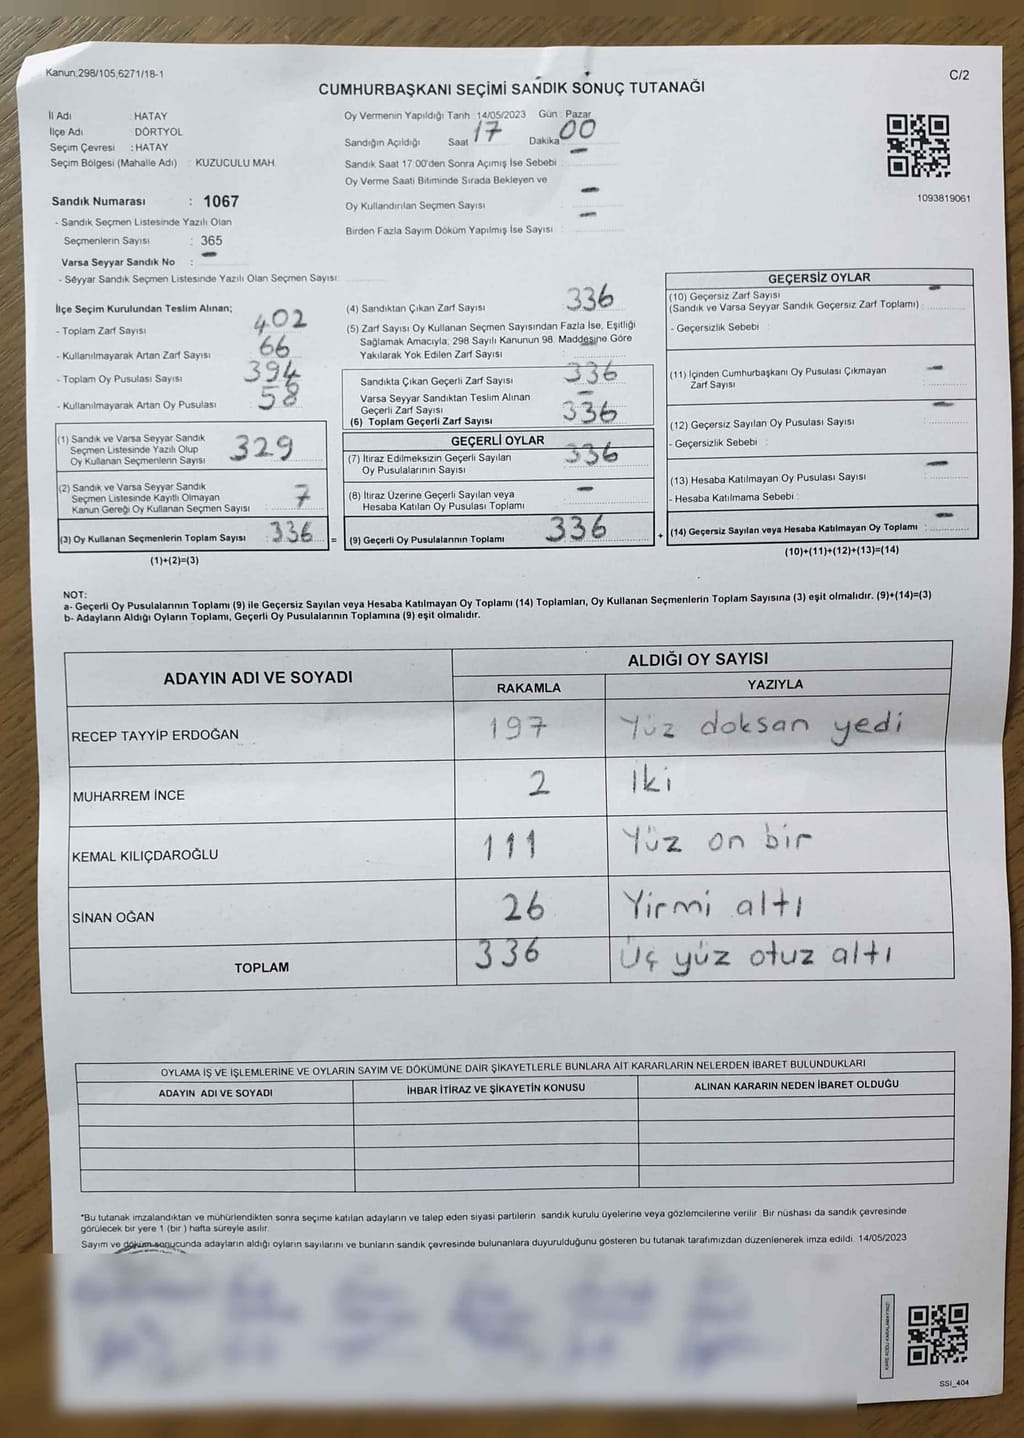 Kanun;298/105;6271/18-1
C/2
CUMHURBAŞKANI SEÇİMİ SANDIK SONUÇ TUTANAĞI
İl Adı : HATAY
İlçe Adı DÖRTYOL
Seçim Çevresi : HATAY
Seçim Bölgesi (Mahalle Adı) : KUZUCULU MAH.
Oy Vermenin Yapıldığı Tarih : 14/05/2023 Gün : Pazar
Sandığın Açıldığı Saat 17 Dakika 00
Sandık Saat 17:00'den Sonra Açımış İse Sebebi : -
Oy Verme Saati Bitiminde Sırada Bekleyen ve
Oy Kullandırılan Seçmen Sayısı -
Birden Fazla Sayım Döküm Yapılmış İse Sayısı : -
1093819061
Sandık Numarası : 1067
- Sandık Seçmen Listesinde Yazılı Olan
Seçmenlerin Sayısı : 365
Varsa Seyyar Sandık No : -
- Seyyar Sandık Seçmen Listesinde Yazılı Olan Seçmen Sayısı:
İlçe Seçim Kurulundan Teslim Alınan;
- Toplam Zarf Sayısı 402
- Kullanılmayarak Artan Zarf Sayısı 66
- Toplam Oy Pusulası Sayısı 394
- Kullanılmayarak Artan Oy Pusulası 58
(1) Sandık ve Varsa Seyyar Sandık
Seçmen Listesinde Yazılı Olup
Oy Kullanan Seçmenlerin Sayısı 329
(2) Sandık ve Varsa Seyyar Sandık
Seçmen Listesinde Kayıtlı Olmayan
Kanun Gereği Oy Kullanan Seçmen Sayısı : 7
(3) Oy Kullanan Seçmenlerin Toplam Sayısı : 336 =
(1)+(2)=(3)
(4) Sandıktan Çıkan Zarf Sayısı 336
(5) Zarf Sayısı Oy Kullanan Seçmen Sayısından Fazla İse, Eşitliği
Sağlamak Amacıyla; 298 Sayılı Kanunun 98. Maddesine Göre
Yakılarak Yok Edilen Zarf Sayısı -
Sandıkta Çıkan Geçerli Zarf Sayısı 336
Varsa Seyyar Sandıktan Teslim Alınan
Geçerli Zarf Sayısı -
(6) Toplam Geçerli Zarf Sayısı 336
GEÇERLİ OYLAR
(7) İtiraz Edilmeksizin Geçerli Sayılan
Oy Pusulalarının Sayısı 336
(8) İtiraz Üzerine Geçerli Sayılan veya
Hesaba Katılan Oy Pusulası Toplamı -
(9) Geçerli Oy Pusulalarının Toplamı 336 +
GEÇERSİZ OYLAR
(10) Geçersiz Zarf Sayısı
(Sandık ve Varsa Seyyar Sandık Geçersiz Zarf Toplamı) : -
- Geçersizlik Sebebi :
(11) İçinden Cumhurbaşkanı Oy Pusulası Çıkmayan
Zarf Sayısı : -
(12) Geçersiz Sayılan Oy Pusulası Sayısı : -
- Geçersizlik Sebebi :
(13) Hesaba Katılmayan Oy Pusulası Sayısı : -
- Hesaba Katılmama Sebebi :
(14) Geçersiz Sayılan veya Hesaba Katılmayan Oy Toplamı : -
(10)+(11)+(12)+(13)=(14)
NOT:
a- Geçerli Oy Pusulalarının Toplamı (9) ile Geçersiz Sayılan veya Hesaba Katılmayan Oy Toplamı (14) Toplamları, Oy Kullanan Seçmenlerin Toplam Sayısına (3) eşit olmalıdır. (9)+(14)=(3)
b- Adayların Aldığı Oyların Toplamı, Geçerli Oy Pusulalarının Toplamına (9) eşit olmalıdır.
ADAYIN ADI VE SOYADI ALDIĞI OY SAYISI
RAKAMLA YAZIYLA
RECEP TAYYİP ERDOĞAN 197 Yüz doksan yedi
MUHARREM İNCE 2 İki
KEMAL KILIÇDAROĞLU 111 Yüz on bir
SİNAN OĞAN 26 Yirmi altı
TOPLAM 336 Üç yüz otuz altı
OYLAMA İŞ VE İŞLEMLERİNE VE OYLARIN SAYIM VE DÖKÜMÜNE DAİR ŞİKAYETLERLE BUNLARA AİT KARARLARIN NELERDEN İBARET BULUNDUKLARI
ADAYIN ADI VE SOYADI İHBAR İTİRAZ VE ŞİKAYETİN KONUSU ALINAN KARARIN NEDEN İBARET OLDUĞU
*Bu tutanak imzalandıktan ve mühürlendikten sonra seçime katılan adayların ve talep eden siyasi partilerin sandık kurulu üyelerine veya gözlemcilerine verilir. Bir nüshası da sandık çevresinde
görülecek bir yere 1 (bir) hafta süreyle asılır.
Sayım ve döküm sonucunda adayların aldığı oyların sayılarını ve bunların sandık çevresinde bulunanlara duyurulduğunu gösteren bu tutanak tarafımızdan düzenlenerek imza edildi. 14/05/2023
KARE KODU KARALAMAYINIZ!
SSI_404